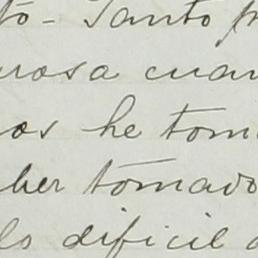 to - Santo
rosa cuan
os he tom
ber tomado
lo dificil